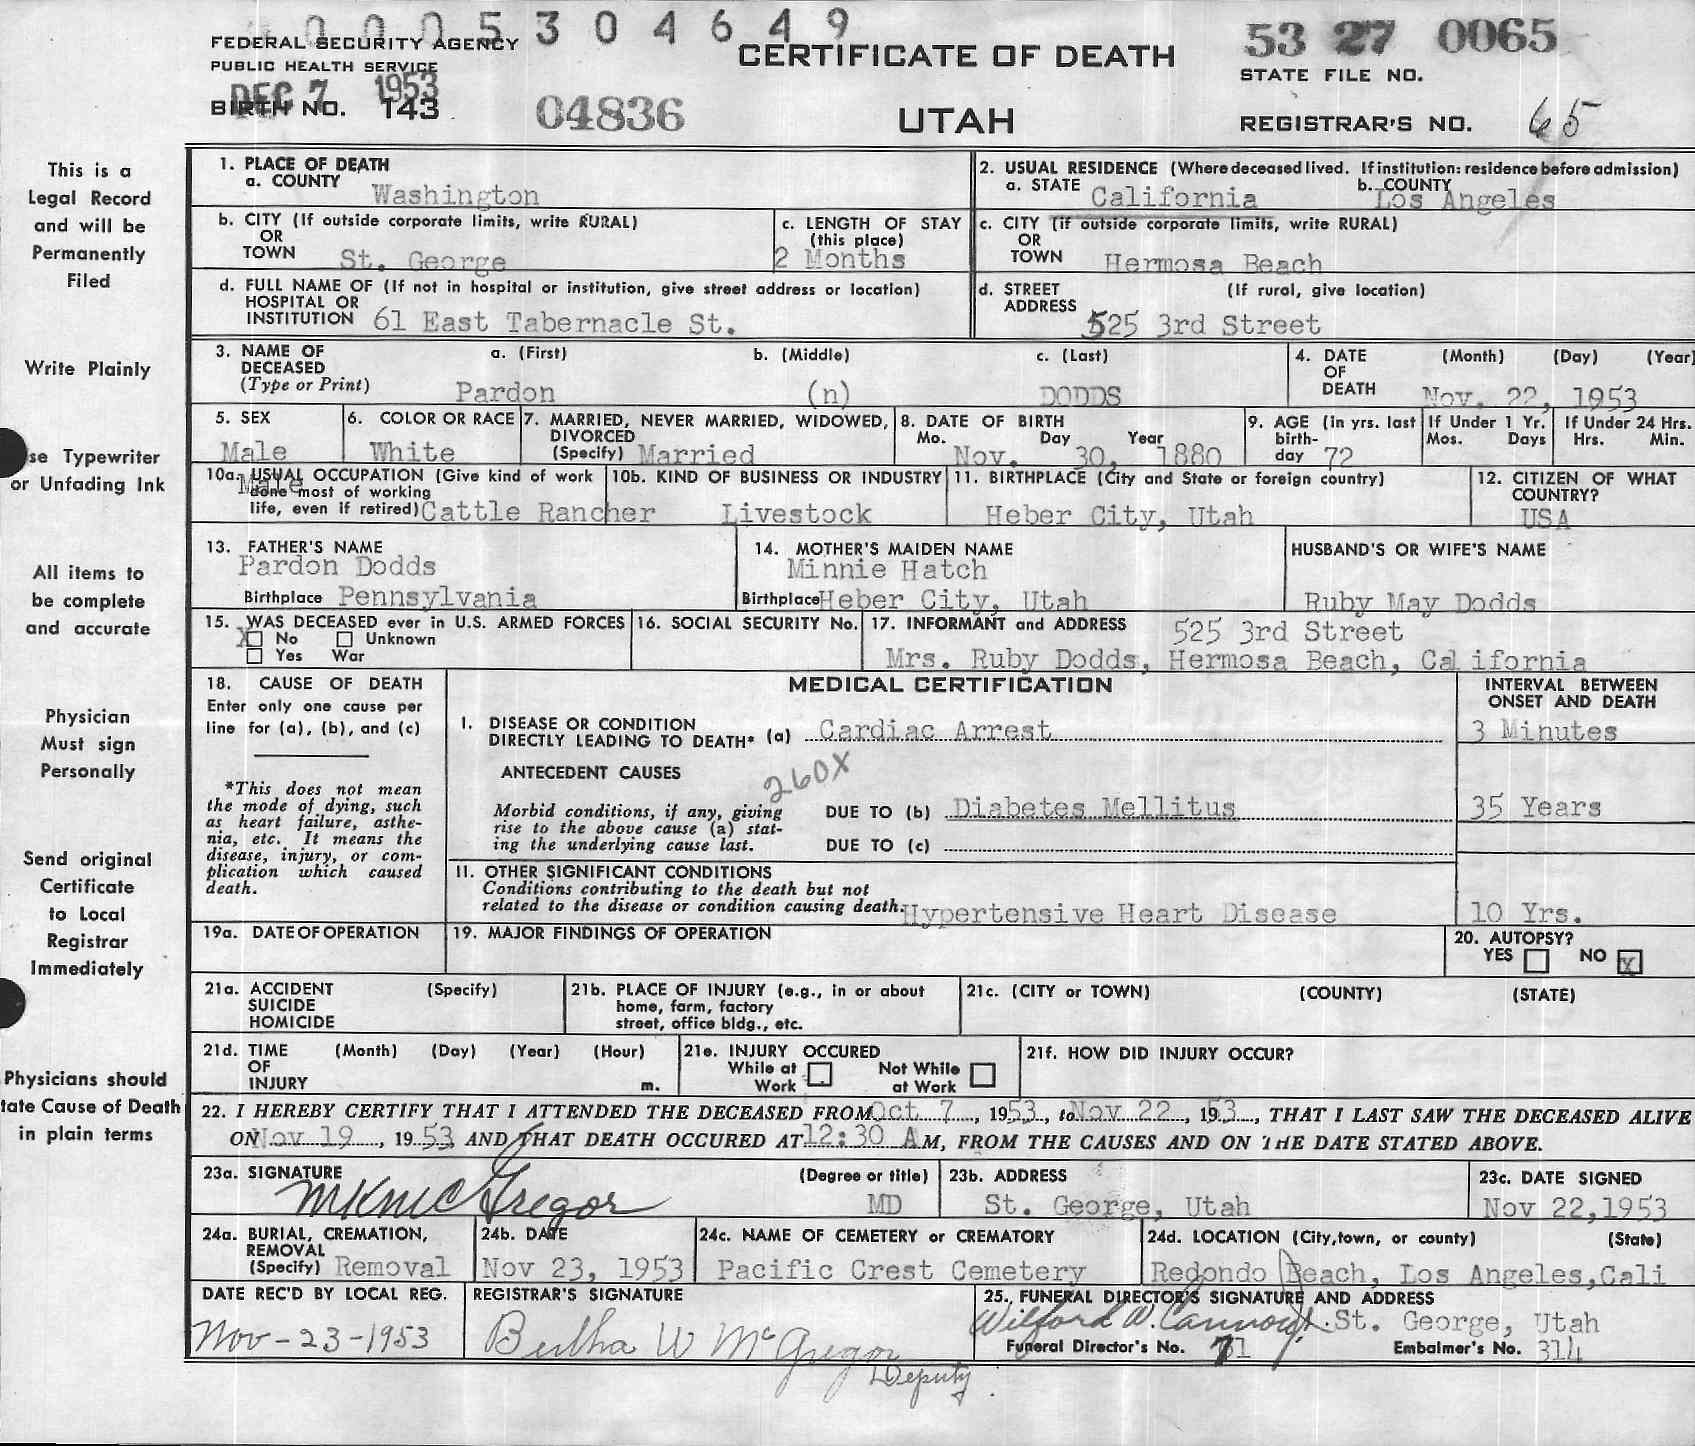 0005304649
FEDERAL SECURITY AGENCY
PUBLIC HEALTH SERVICE
DEC 7 1953
BIRTH NO. 143
04836
CERTIFICATE OF DEATH
UTAH
53 27 0065
STATE FILE NO.
REGISTRAR'S NO. 65
This is a
Legal Record
and will be
Permanently
Filed
Write Plainly
se Typewriter
or Unfading Ink
All items to
be complete
and accurate
Physician
Must sign
Personally
Send original
Certificate
to Local
Registrar
Immediately
Physicians should
tate Cause of Death
in plain terms
1. PLACE OF DEATH
a. COUNTY Washington
2. USUAL RESIDENCE (Where deceased lived. If institution: residence before admission)
a. STATE California b. COUNTY Los Angeles
b. CITY (If outside corporate limits, write RURAL)
OR
TOWN St. George
c. LENGTH OF STAY
(this place)
2 Months
c. CITY (If outside corporate limits, write RURAL)
OR
TOWN Hermosa Beach
d. FULL NAME OF (If not in hospital or institution, give street address or location)
HOSPITAL OR
INSTITUTION 61 East Tabernacle St.
d. STREET (If rural, give location)
ADDRESS 525 3rd Street
3. NAME OF DECEASED (Type or Print)
a. (First) b. (Middle) c. (Last)
Pardon (n) DODDS
4. DATE OF DEATH (Month) (Day) (Year)
Nov. 22, 1953
5. SEX
Male
6. COLOR OR RACE
White
7. MARRIED, NEVER MARRIED, WIDOWED,
DIVORCED
(Specify) Married
8. DATE OF BIRTH
Mo. Day Year
Nov. 30, 1880
9. AGE (in yrs. last
birth-
day 72
If Under 1 Yr.
Mos. Days
If Under 24 Hrs.
Hrs. Min.
10a. USUAL OCCUPATION (Give kind of work
Male
done most of working
life, even if retired) Cattle Rancher
10b. KIND OF BUSINESS OR INDUSTRY
Livestock
11. BIRTHPLACE (City and State or foreign country)
Heber City, Utah
12. CITIZEN OF WHAT
COUNTRY?
USA
13. FATHER'S NAME
Pardon Dodds
Birthplace Pennsylvania
14. MOTHER'S MAIDEN NAME
Minnie Hatch
Birthplace Heber City, Utah
HUSBAND'S OR WIFE'S NAME
Ruby May Dodds
15. WAS DECEASED ever in U.S. ARMED FORCES
X No Unknown
Yes War
16. SOCIAL SECURITY No.
17. INFORMANT and ADDRESS 525 3rd Street
Mrs. Ruby Dodds, Hermosa Beach, California
18. CAUSE OF DEATH
Enter only one cause per
line for (a), (b), and (c)
*This does not mean
the mode of dying, such
as heart failure, asthe-
nia, etc. It means the
disease, injury, or com-
plication which caused
death.
MEDICAL CERTIFICATION
INTERVAL BETWEEN
ONSET AND DEATH
I. DISEASE OR CONDITION
DIRECTLY LEADING TO DEATH* (a) Cardiac Arrest
3 Minutes
ANTECEDENT CAUSES
260X
Morbid conditions, if any, giving
rise to the above cause (a) stat-
ing the underlying cause last.
DUE TO (b) Diabetes Mellitus
35 Years
DUE TO (c)
11. OTHER SIGNIFICANT CONDITIONS
Conditions contributing to the death but not
related to the disease or condition causing death. Hypertensive Heart Disease
10 Yrs.
19a. DATE OF OPERATION
19. MAJOR FINDINGS OF OPERATION
20. AUTOPSY?
YES NO X
21a. ACCIDENT (Specify)
SUICIDE
HOMICIDE
21b. PLACE OF INJURY (e.g., in or about
home, farm, factory
street, office bldg., etc.
21c. (CITY or TOWN) (COUNTY) (STATE)
21d. TIME (Month) (Day) (Year) (Hour)
OF
INJURY m.
21e. INJURY OCCURED
While at Work Not While at Work
21f. HOW DID INJURY OCCUR?
22. I HEREBY CERTIFY THAT I ATTENDED THE DECEASED FROM Oct 7, 1953, to Nov 22, 1953, THAT I LAST SAW THE DECEASED ALIVE
ON Nov 19, 1953 AND THAT DEATH OCCURED AT 12:30 AM, FROM THE CAUSES AND ON THE DATE STATED ABOVE.
23a. SIGNATURE (Degree or title)
MKMcGregor MD
23b. ADDRESS
St. George, Utah
23c. DATE SIGNED
Nov 22,1953
24a. BURIAL, CREMATION,
REMOVAL
(Specify) Removal
24b. DATE
Nov 23, 1953
24c. NAME OF CEMETERY OR CREMATORY
Pacific Crest Cemetery
24d. LOCATION (City, town, or county) (State)
Redondo Beach, Los Angeles, Cali
DATE REC'D BY LOCAL REG.
Nov-23-1953
REGISTRAR'S SIGNATURE
Bertha W McGregor
Deputy
25. FUNERAL DIRECTOR'S SIGNATURE AND ADDRESS
Wilford W. Cannon St. George, Utah
Funeral Director's No. 71 Embalmer's No. 314